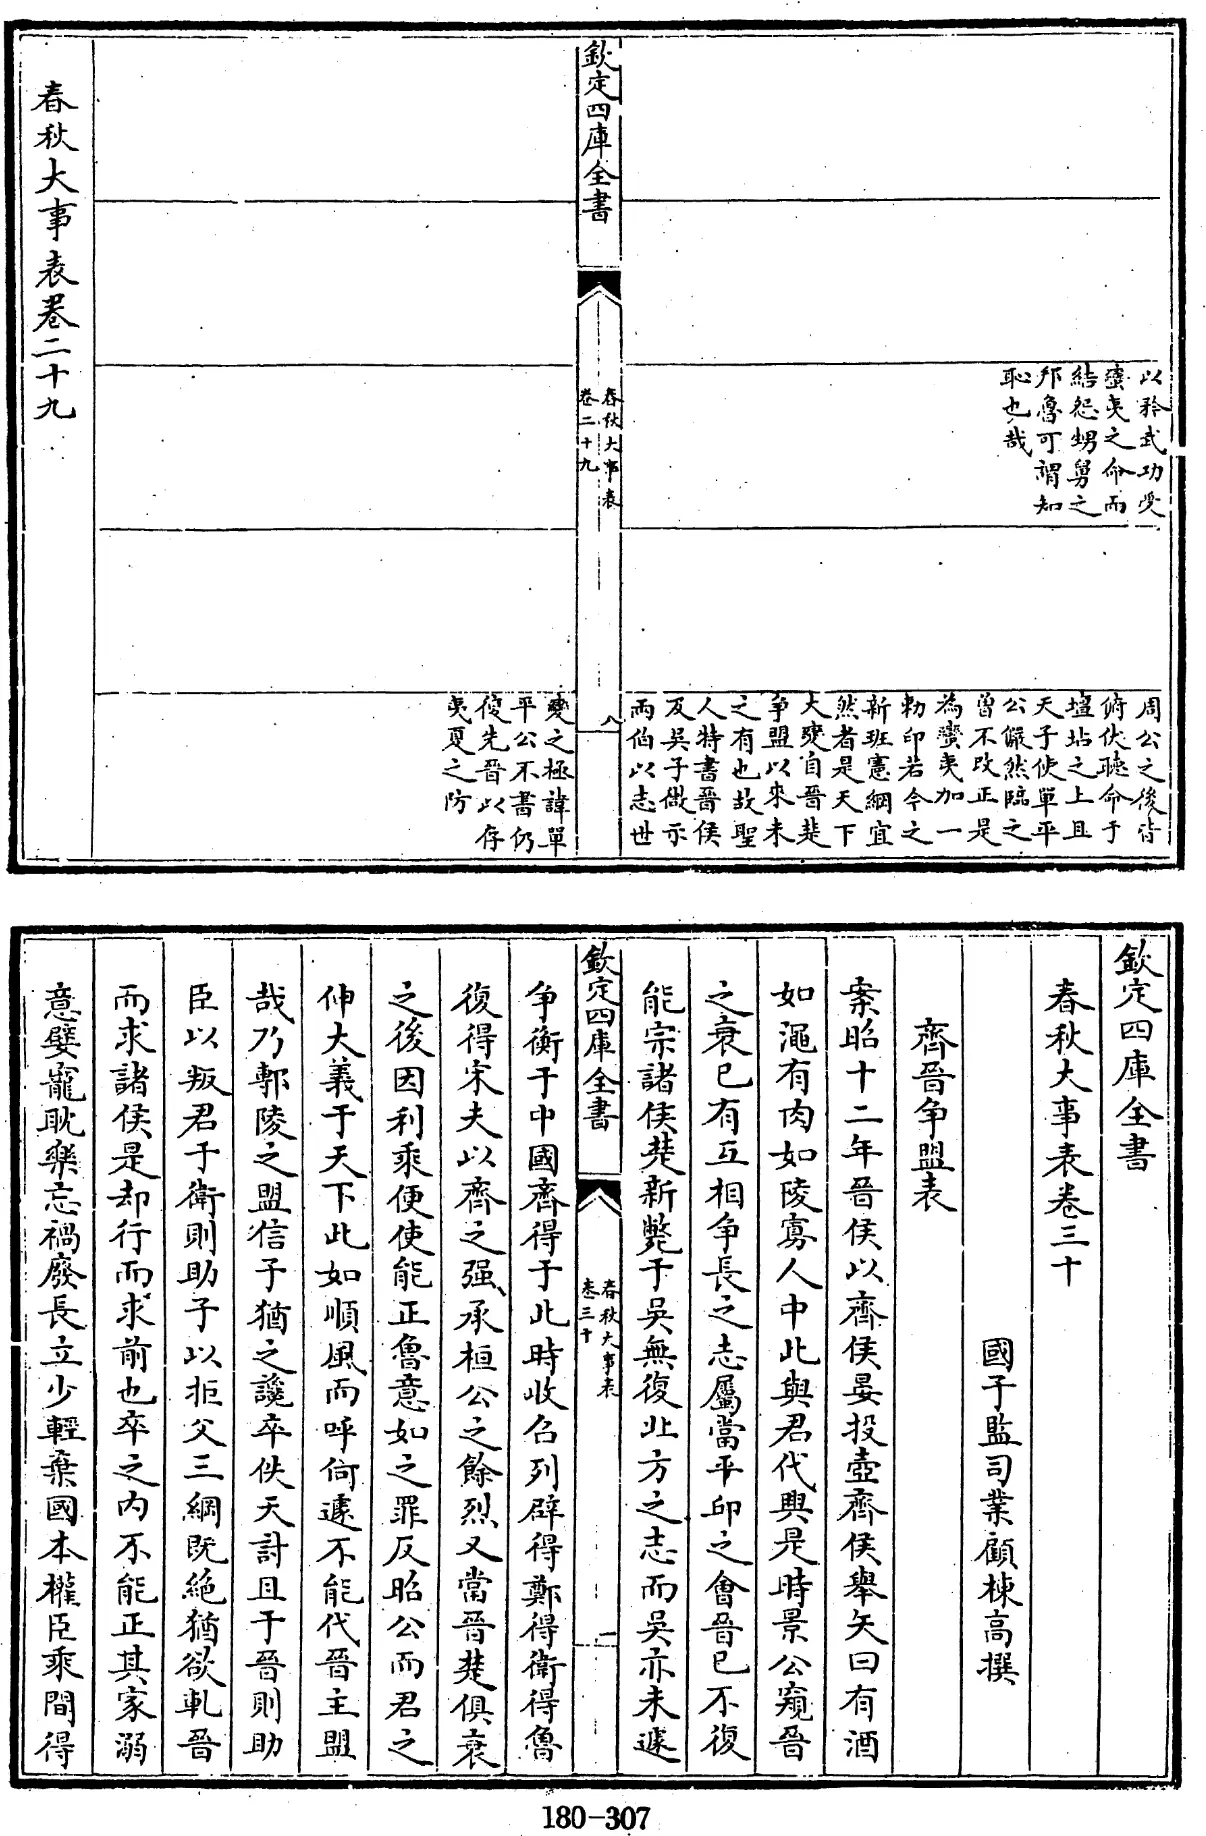 以矜武功受
蠻夷之命而
結怨甥舅之
邦魯可謂知
恥也哉
周公之後皆
俯伏聽命于
壇坫之上且
天子使單平
公儼然臨之
曾不改正是
為蠻夷加一
勑印若今之
新班憲綱宜
然者是天下
大變自晉楚
爭盟以來未
之有也故聖
人特書晉侯
及吳子做示
兩伯以志世
欽定四庫全書
春秋大事表
卷二十九
八
變之極諱單
平公不書仍
使先晉以存
夷夏之防
春秋大事表卷二十九
欽定四庫全書
春秋大事表卷三十
國子監司業顧棟高撰
齊晉争盟表
案昭十二年晉侯以齊侯晏投壺齊侯舉矢曰有酒
如澠有肉如陵寡人中此與君代興是時景公窺晉
之衰已有互相争長之志屬當平邱之會晉已不復
能宗諸侯楚新斃于吳無復北方之志而吳亦未遽
欽定四庫全書
春秋大事表
卷三十
一
争衡于中國齊得于此時收召列辟得鄭得衛得魯
復得宋夫以齊之强承桓公之餘烈又當晉楚俱衰
之後因利乘便使能正魯意如之罪反昭公而君之
伸大義于天下此如順風而呼何遽不能代晉主盟
哉乃鄟陵之盟信子猶之讒卒佚天討且于晉則助
臣以叛君于衛則助子以拒父三綱既絶猶欲軋晉
而求諸侯是却行而求前也卒之内不能正其家溺
意嬖寵耽樂忘禍廢長立少輕棄國本權臣乘間得
180-307